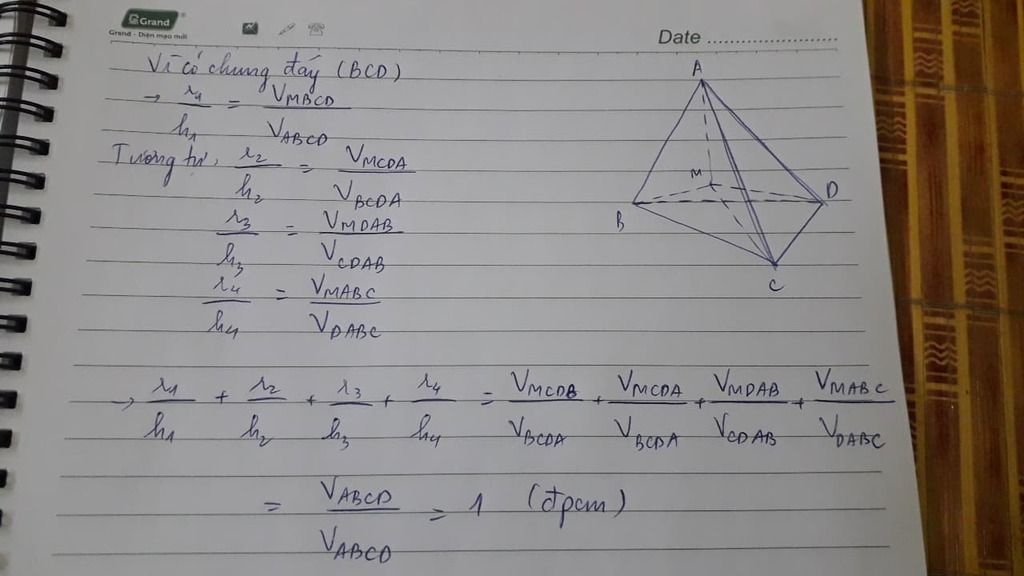 Grand
Grand - Diện mạo mới
Date ........................
Vì có chung đáy (BCD)
→ r1/h1 = VMBCD/VABCD
Tương tự, r2/h2 = VMCDA/VBCDA
r3/h3 = VMDAB/VCDAB
r4/h4 = VMABC/VDABC
→ r1/h1 + r2/h2 + r3/h3 + r4/h4 = VMCDB/VBCDA + VMCDA/VBCDA + VMDAB/VCDAB + VMABC/VDABC
= VABCD/VABCD = 1 (đpcm)
A
M
B
D
C